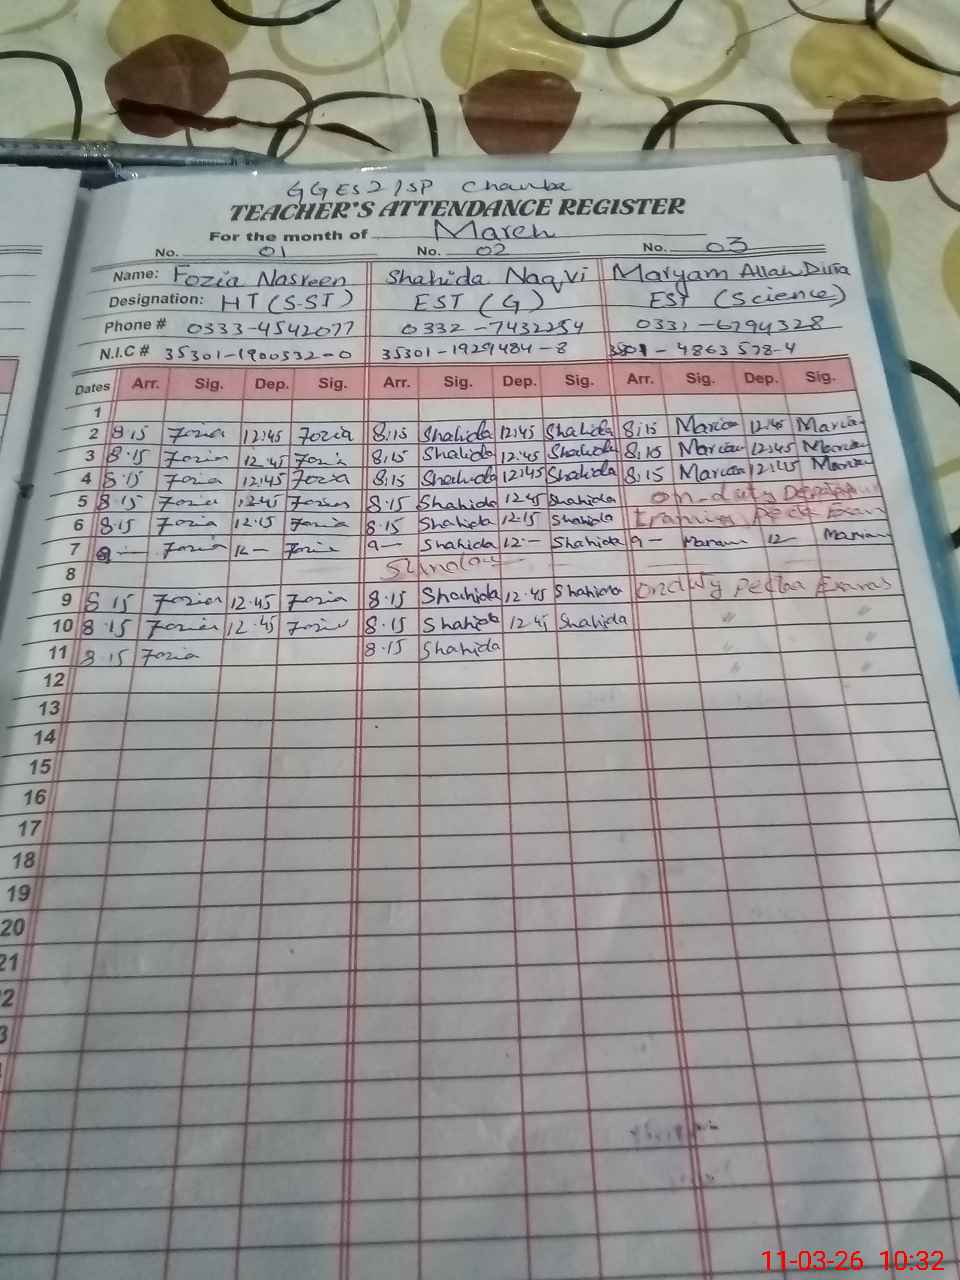 GGES 2/SP Chamba
TEACHER'S ATTENDANCE REGISTER
For the month of March
No. 01 No. 02 No. 03
Name: Fozia Nasreen Shahida Naqvi Maryam Allah Ditta
Designation: HT (S-ST) EST (G) EST (Science)
Phone # 0333-4542077 0332-7432254 0331-6794328
N.I.C # 35301-1900532-0 35301-1929484-8
Dates Arr. Sig. Dep. Sig. Arr. Sig. Dep. Sig. Arr. Sig. Dep. Sig.
1
2 8:15 Fozia 12:45 Fozia 8:15 Shahida 12:45 Shahida 8:15 12:45
3 8:15 Fozia 12:45 Fozia 8:15 Shahida 12:45 Shahida 8:15 12:45
4 8:15 Fozia 12:45 Fozia 8:15 Shahida 12:45 Shahida 8:15 12:45
5 8:15 Fozia 12:45 Fozia 8:15 Shahida 12:45 Shahida on-duty
6 8:15 Fozia 12:15 Fozia 8:15 Shahida 12:15 Shahida training
7 9- Fozia 12- Fozia 9- Shahida 12- Shahida 9- 12-
8 Sunday
9 8:15 Fozia 12:45 Fozia 8:15 Shahida 12:45 Shahida on duty
10 8:15 Fozia 12:45 Fozia 8:15 Shahida 12:45 Shahida 〃 〃
11 8:15 Fozia 8:15 Shahida 〃 〃
12 〃 〃
13
14
15
16
17
18
19
20
21
2
3
11-03-26 10:32